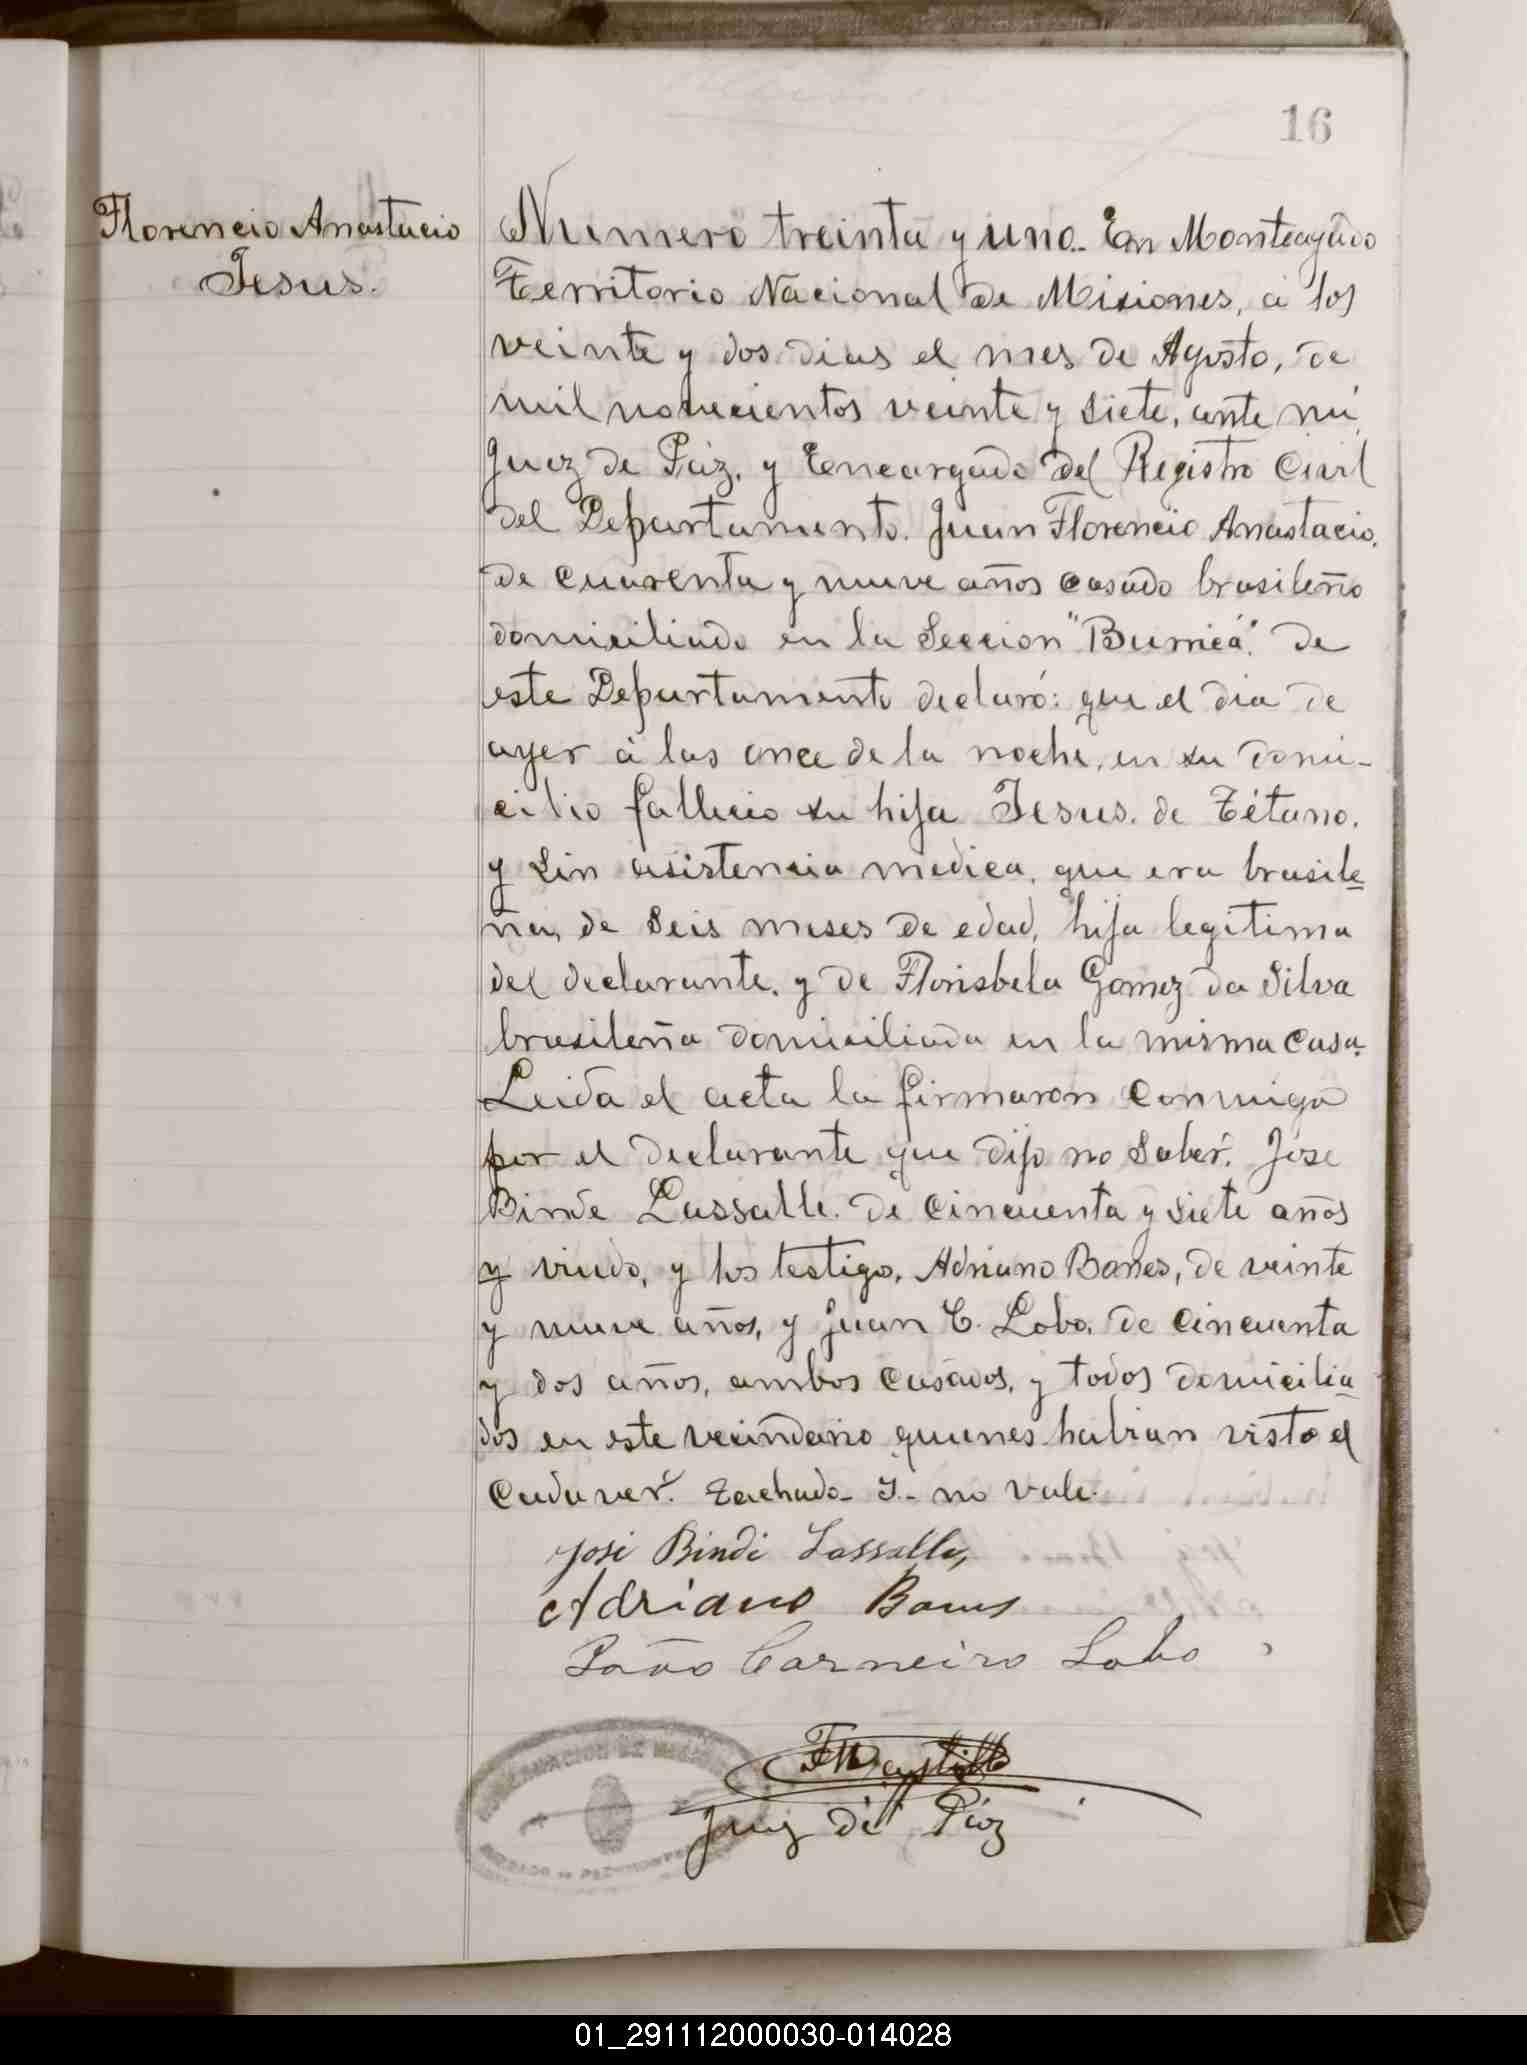 16
Florencio Anastacio
Jesus.
Numero treinta y uno.- En Monteagudo
Territorio Nacional de Misiones, á los
veinte y dos dias el mes de Agosto, de
mil novecientos veinte y siete, ante mi,
Juez de Páz, y Encargado del Registro Civil
del Departamento. Juan Florencio Anastacio.
de cuarenta y nueve años casado brasileño
domiciliado en la Seccion "Burricá". de
este Departamento declaró: que el dia de
ayer á las once de la noche, en su domi-
cilio fallecio su hija Jesus. de Tétano.
y sin asistencia medica, que era brasile-
ña, de seis meses de edad, hija legitima
del declarante, y de Florisbela Gomez da Silva
brasileña domiciliada en la misma casa.
Leida el acta la firmaron conmigo
por el declarante que dijo no saber. José
Binde Lassalle. de cincuenta y siete años
y viudo, y los testigo, Adriano Bones, de veinte
y nueve años, y Juan C. Lobo. de cincuenta
y dos años, ambos casados, y todos domicilia-
dos en este vecindario quienes habian visto el
cadaver. Tachado- y- no vale.
José Binde Lassalle,
Adriano
João Carneiro Lobo
Juez de Páz
01_291112000030-014028